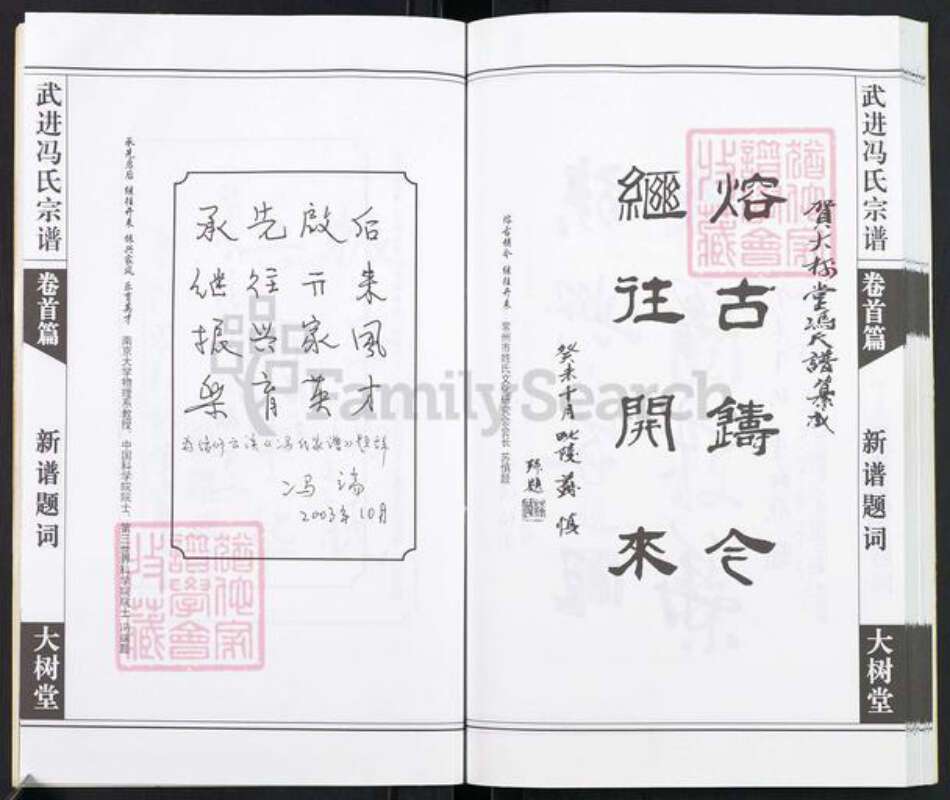 武进冯氏宗谱
卷首篇
新谱题词
大树堂
賀大树堂馮氏譜集成
熔古鑄今
繼往開來
癸未十月毗陵蘇慎
題
熔古铸今 继往开来 常州市姓氏文化研究会会长 苏慎题
承先啟后
继往开来
振兴家风
乐育英才
冯端
2003年10月
承先启后 继往开来 振兴家风 乐育英才 南京大学物理系教授、中国科学院院士、第三世界科学院院士 冯端题
武进冯氏宗谱
卷首篇
新谱题词
大树堂
FamilySearch